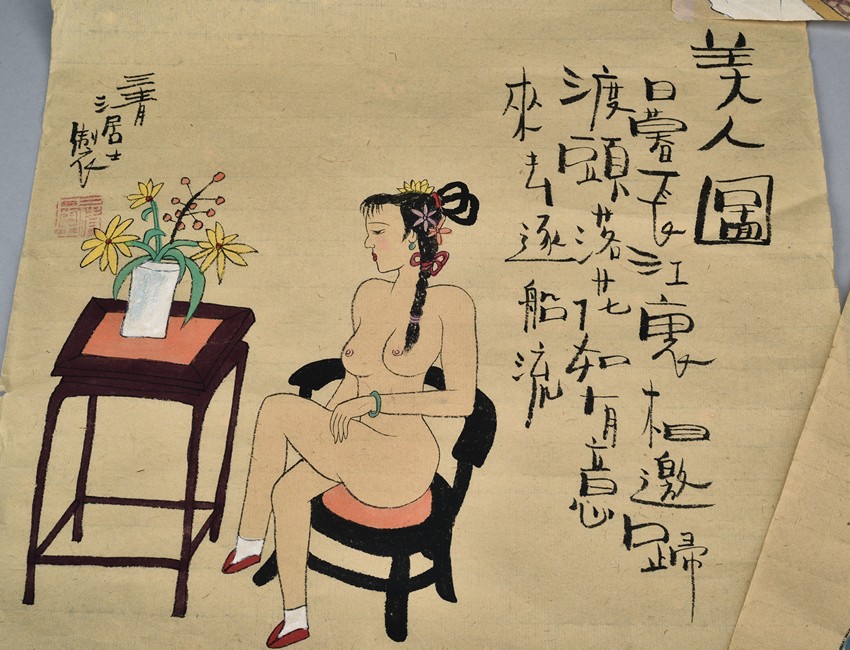 美人圖
日暮長江裏相邀歸
渡頭落花如有意
來去逐船流
三青
三居士
製